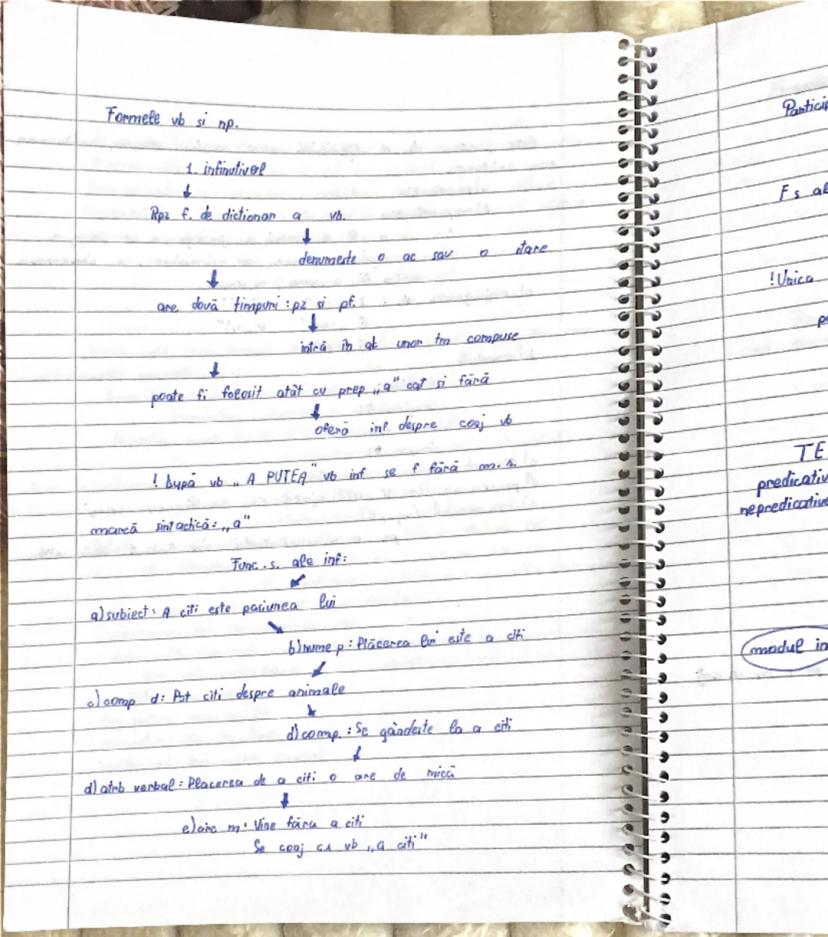 Formele vb si np.
1. infinitivul
Rpz f. de dictionar a vb.
denumeste o ac sau o stare
are două timpuri : pz si pf.
intră în alc unor tm compuse
poate fi folosit atât cu prep „a" cat si fără
oferă inf. despre conj vb
! După vb „A PUTEA" vb inf se f fără m.s.
marcă sintactică: „a"
Func. s. ale inf:
a) subiect: A citi este pasiunea lui
b) nume p: Plăcerea lui este a citi
c) comp d: Pot citi despre animale
d) comp. : Se gândeste la a citi
d) atrb verbal: Placerea de a citi o are de mică
e) circ m: Vine făra a citi
Se conj ca vb „a citi"
Particip
F s al
! Unica
TE
predicativ
nepredicative
modul in